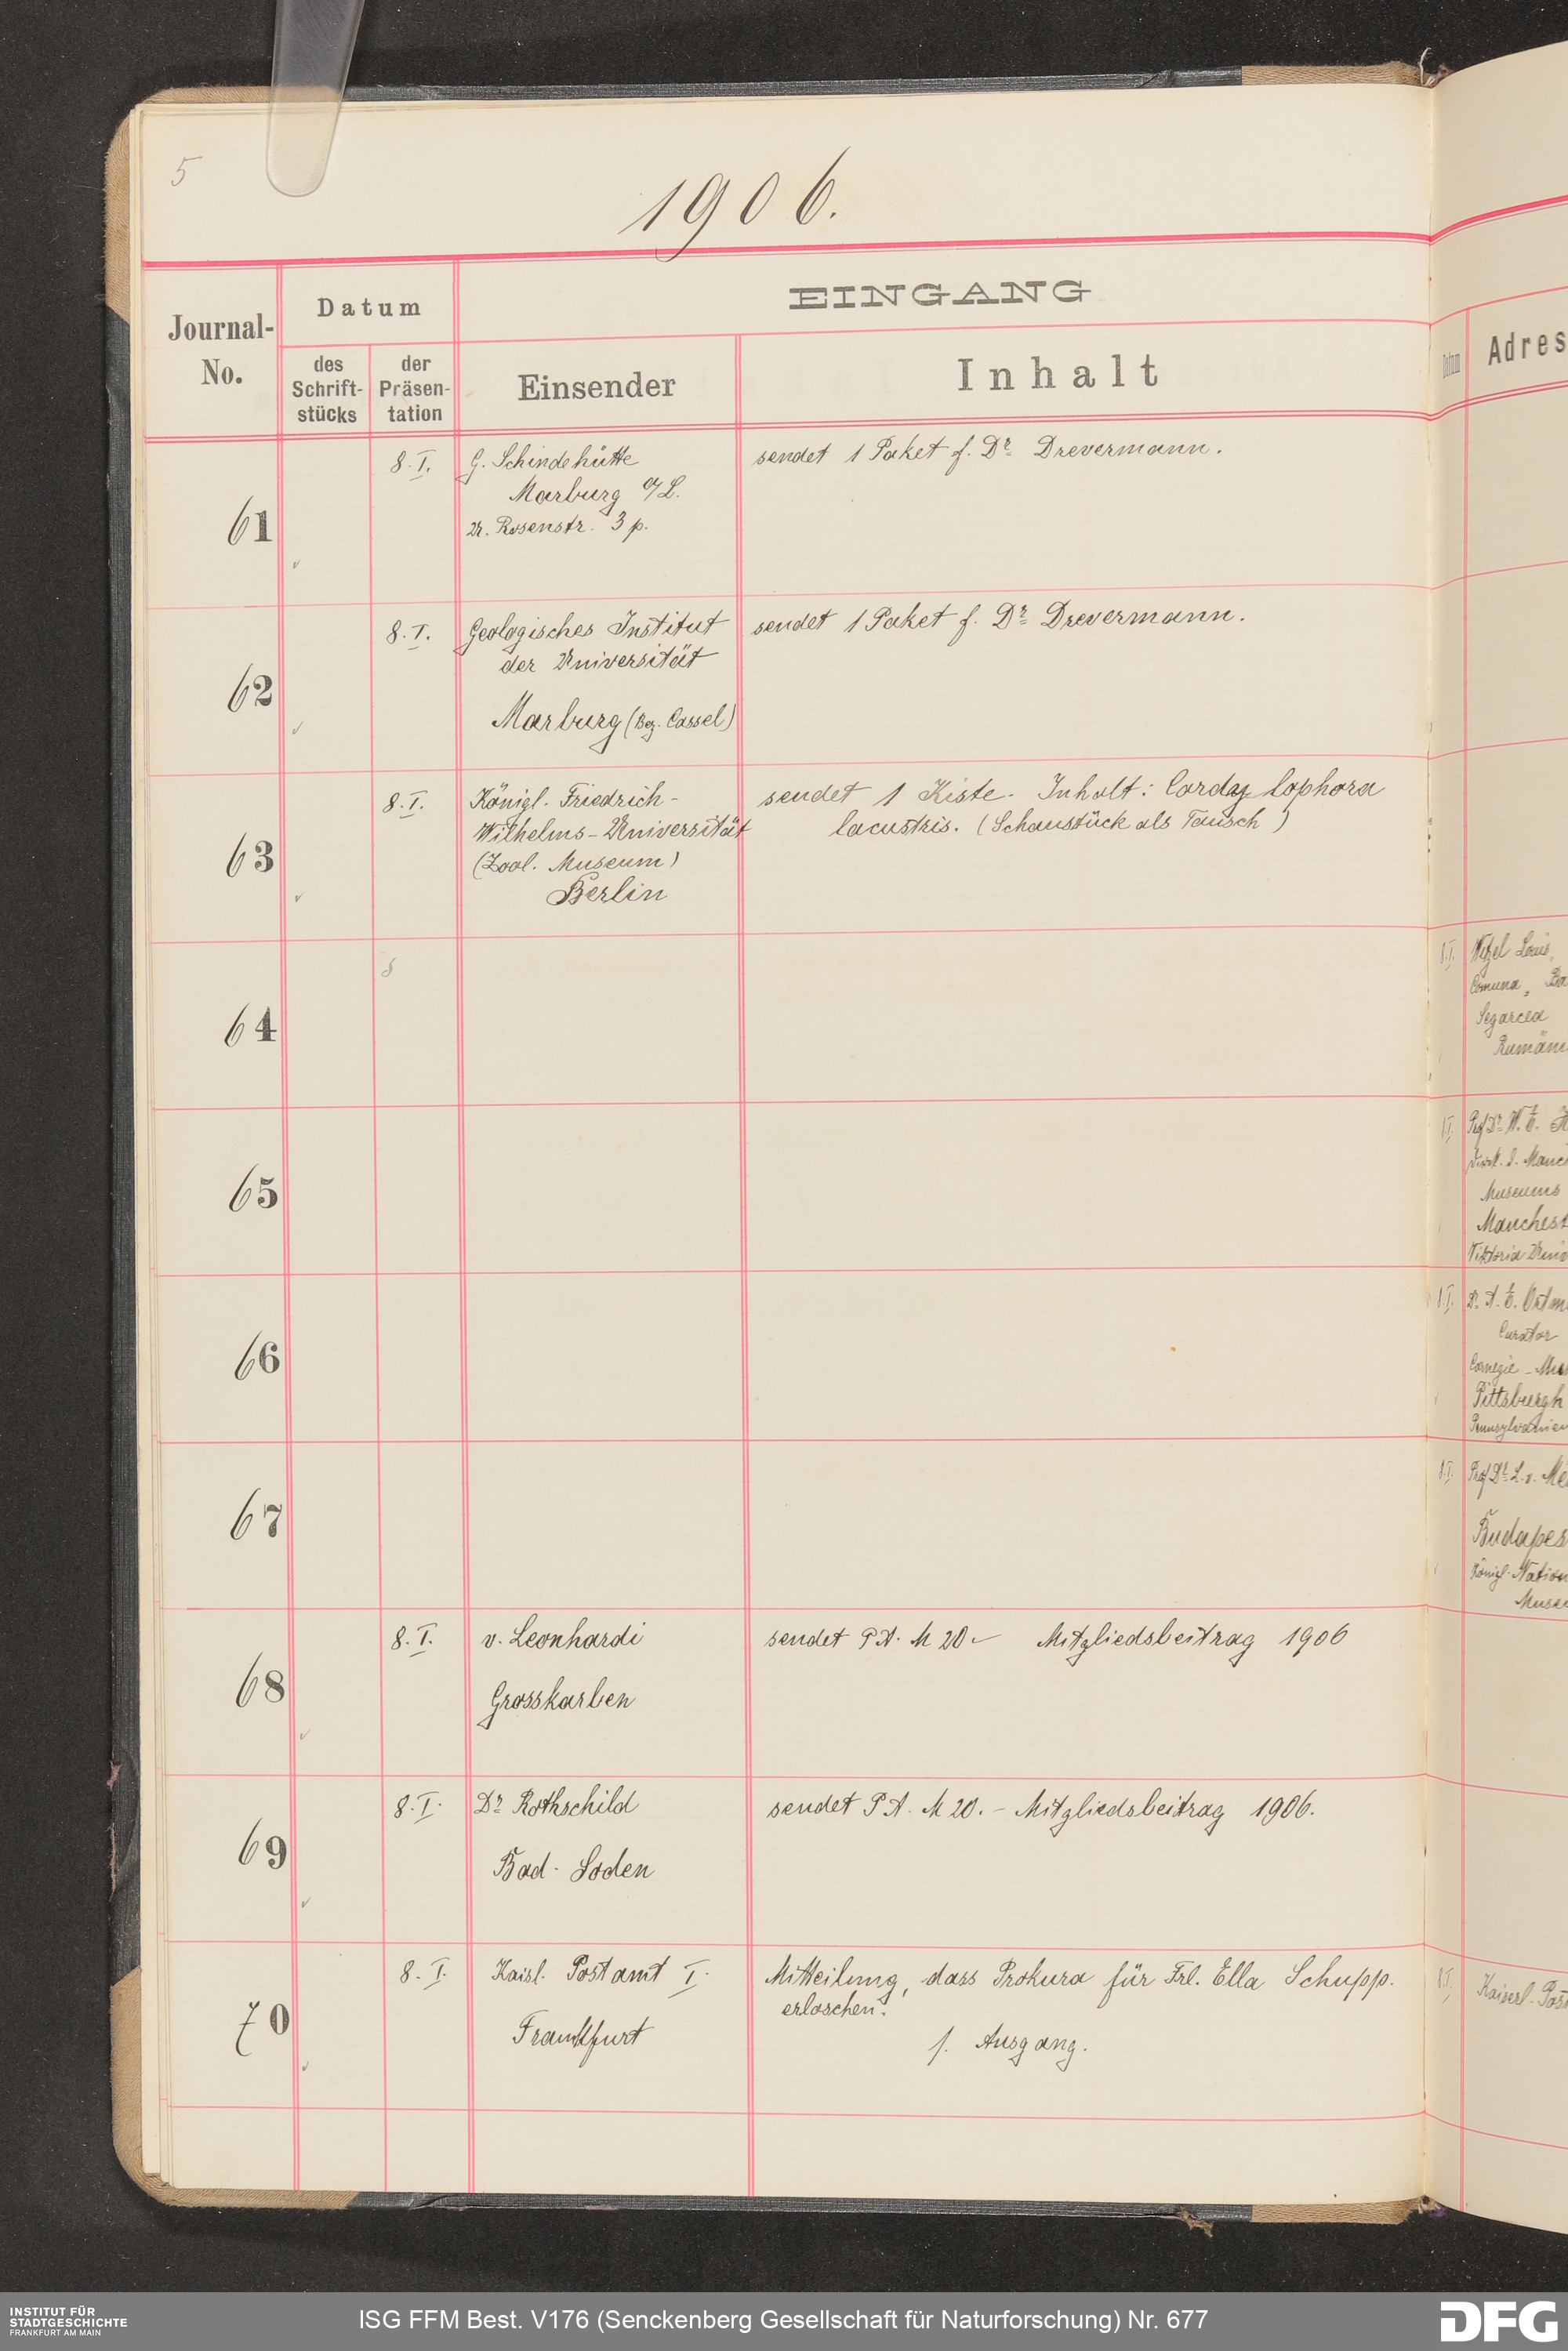 5
1906.
Journal-No.
Datum
des Schrift-stücks
der Präsen-tation
EINGANG
Einsender
Inhalt
Datum
Adres
61
8. I.
G. Schindehütte
Marburg a/L.
Rosenstr. 3 p.
sendet 1 Paket f. Dr. Drevermann.
62
8. I.
Geologisches Institut
der Universität
Marburg (Bez. Cassel)
sendet 1 Paket f. Dr. Drevermann.
63
8. I.
Königl. Friedrich-
Wilhelms-Universität
(Zool. Museum)
Berlin
sendet 1 Kiste. Inhalt: Cordylophora
lacustris. (Schaustück als Tausch)
64
8
Louis,
Comuna,
Segarcea
Rumän
65
Prof Dr. W. E. H
Museums
Manchest
Viktoria Univ
66
Dr. A. E. Ortm
Curator
Carnegie-Mus
Pittsburgh
Pennsylvanien
67
8.I.
Prof Dr. L. v. Me
Budapes
Königl. Nation
Muse
68
8. I.
v. Leonhardi
Grosskarben
sendet P.A. M 20.- Mitgliedsbeitrag 1906
69
8. I.
Dr. Rothschild
Bad-Soden
sendet P.A. M 20.- Mitgliedsbeitrag 1906.
70
8. I.
Kaisl. Postamt I.
Frankfurt
Mitteilung, dass Prokura für Frl. Ella Schupp.
erloschen.
f. Ausgang.
Kaiserl. Post
INSTITUT FÜR
STADTGESCHICHTE
FRANKFURT AM MAIN
ISG FFM Best. V176 (Senckenberg Gesellschaft für Naturforschung) Nr. 677
DFG